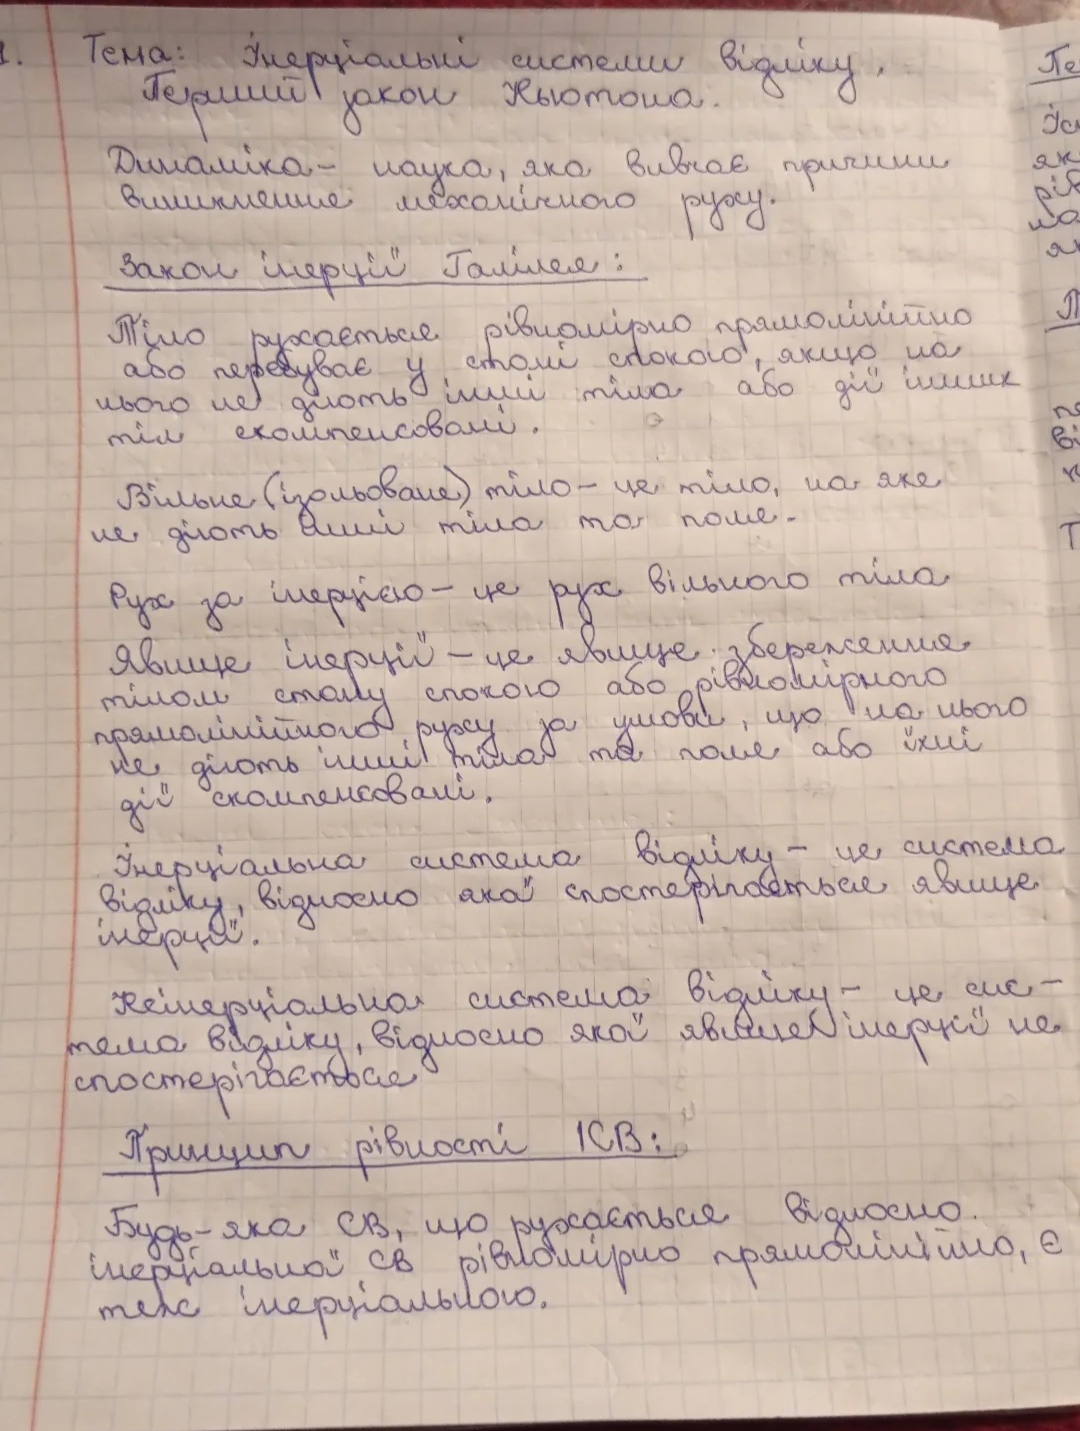 1. Тема: Інерціальні системи відліку.
Перший закон Ньютона.
Динаміка – наука, яка вивчає причини
виникнення механічного руху.
Закон інерції Галілея:
Тіло рухається рівномірно прямолінійно
або перебуває у стані спокою, якщо на
нього не діють інші тіла або дії інших
тіл скомпенсовані.
Вільне (ізольоване) тіло – це тіло, на яке
не діють інші тіла та поле.
Рух за інерцією – це рух вільного тіла
Явище інерції – це явище збереження
тілом стану спокою або рівномірного
прямолінійного руху за умови, що на нього
не діють інші тіла та поле або їхні
дії скомпенсовані.
Інерціальна система відліку – це система
відліку, відносно якої спостерігається явище
інерції.
Неінерціальна система відліку – це сис-
тема відліку, відносно якої явище інерції не
спостерігається
Принцип рівності ІСВ:
Будь-яка СВ, що рухається відносно
інерціальної СВ рівномірно прямолінійно, є
теж інерціальною.